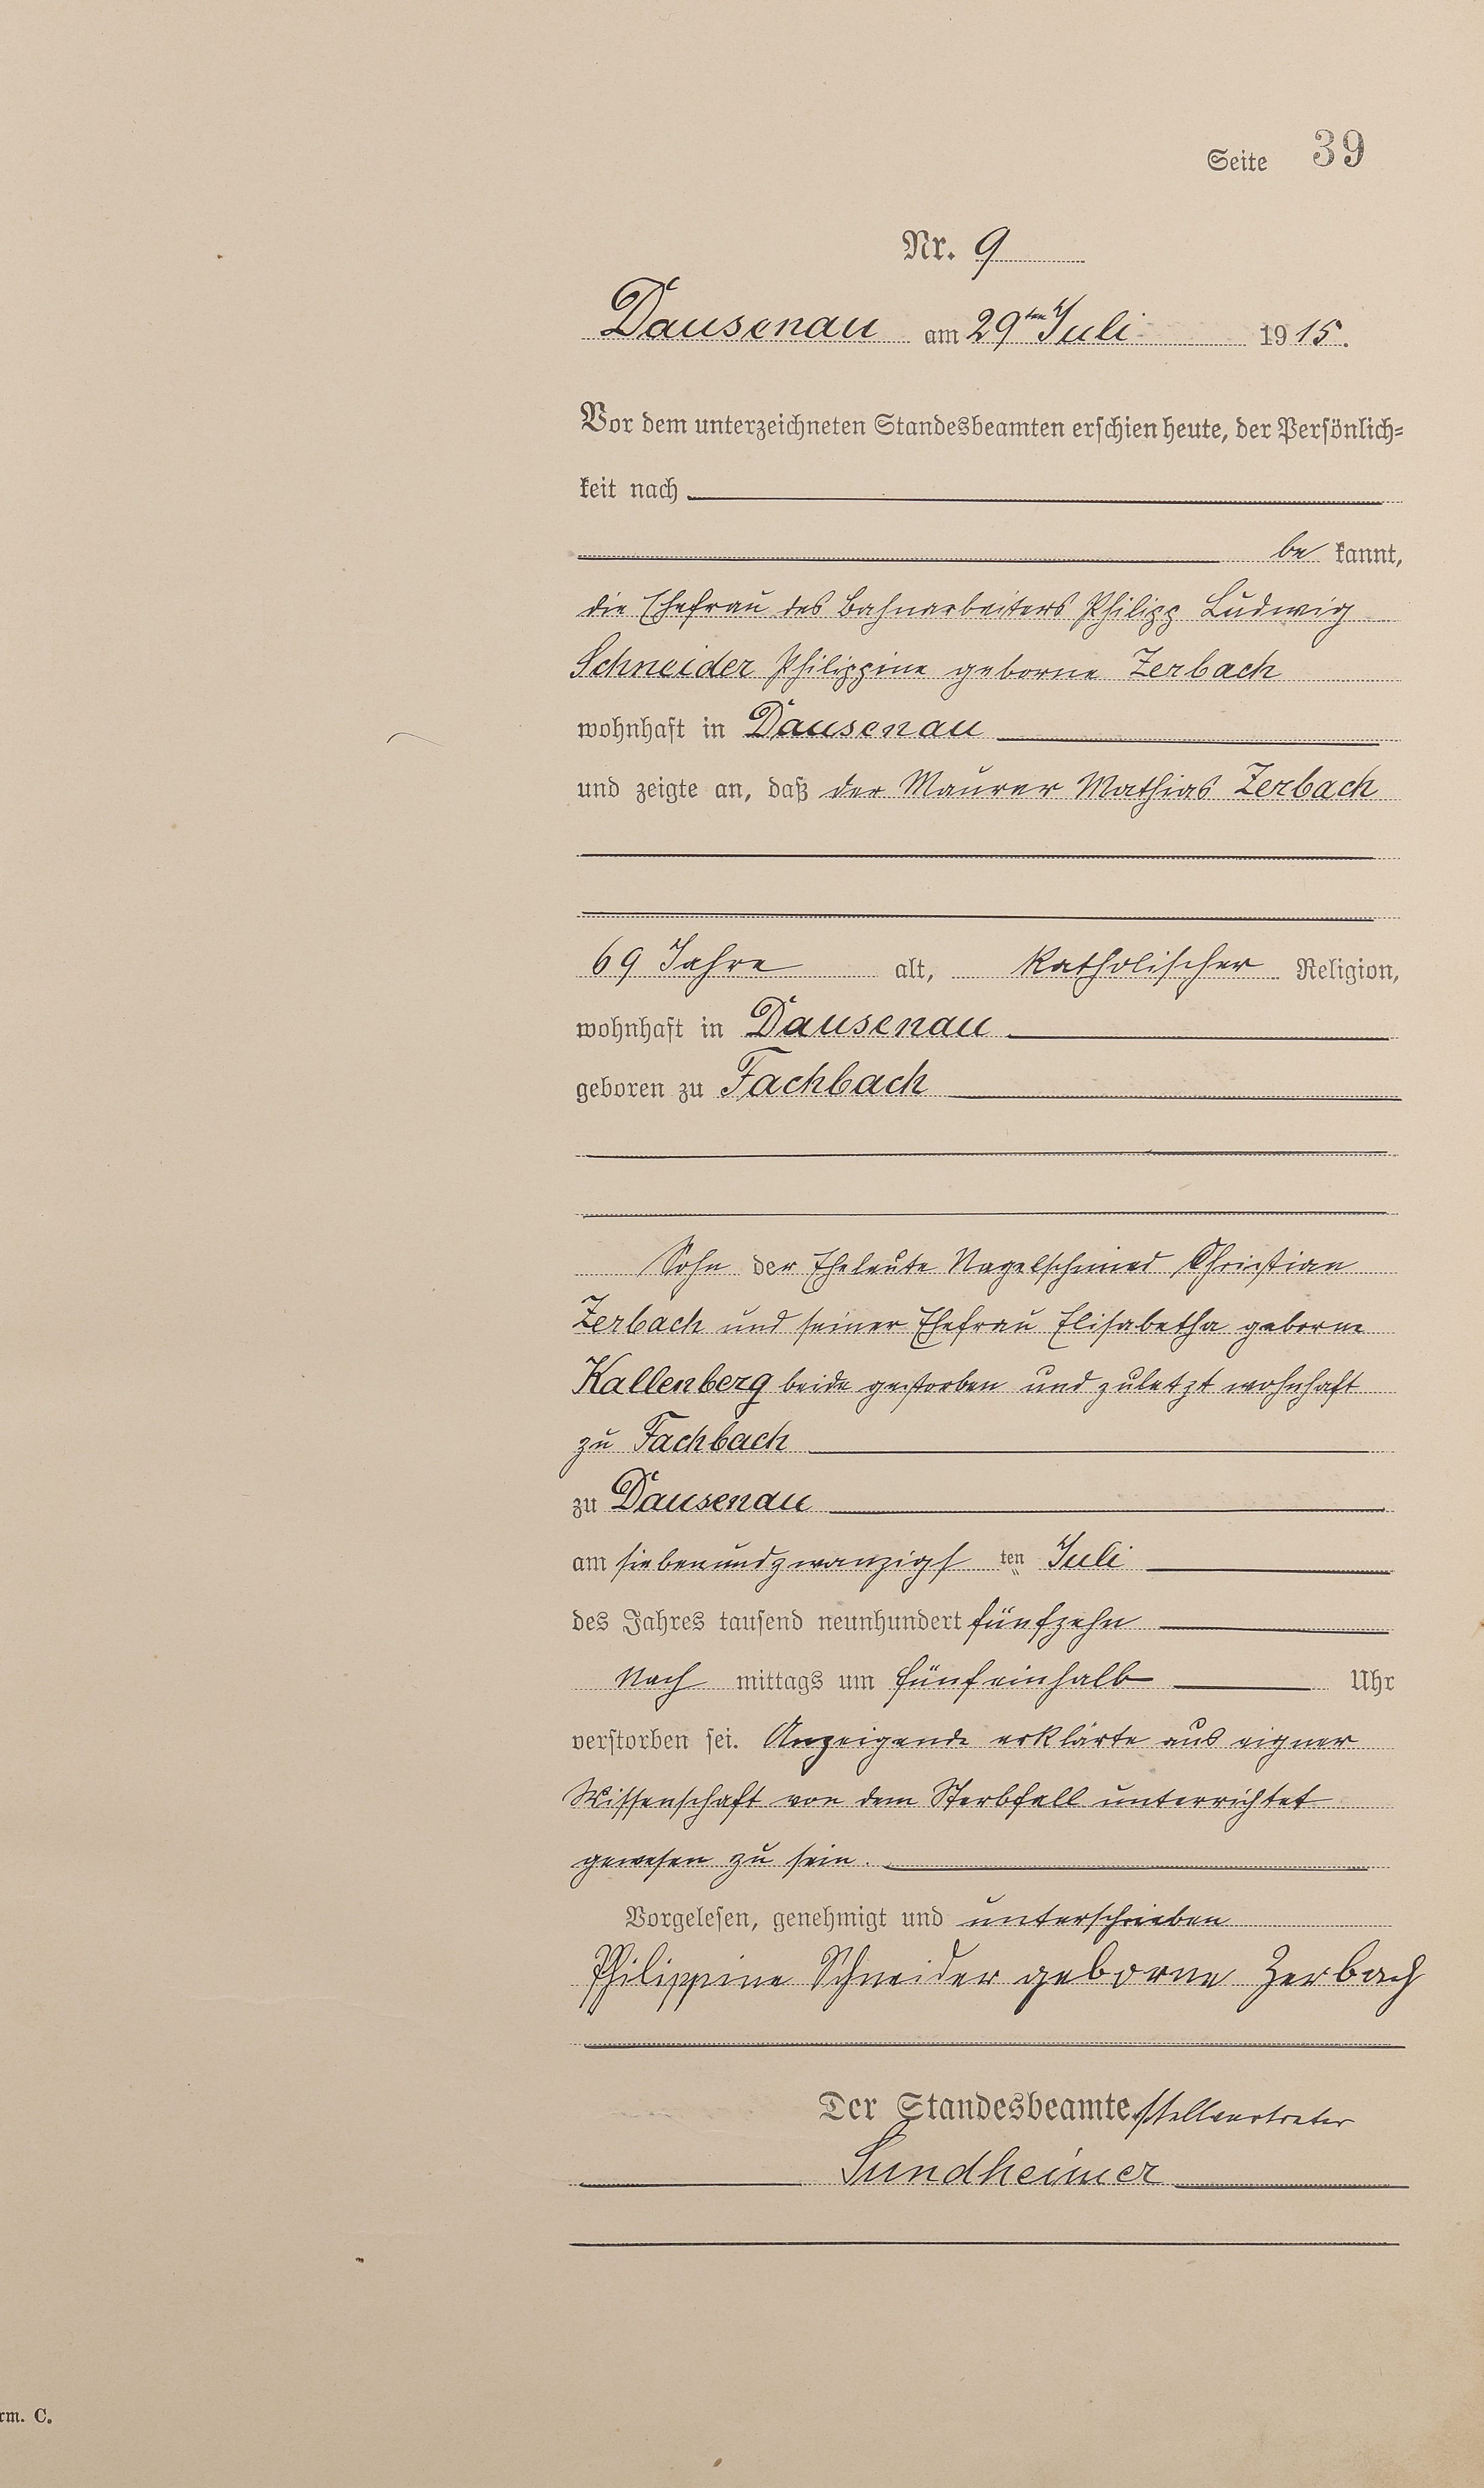 Seite 39
Nr. 9
Dausenau am 29ten Juli 1915.
Vor dem unterzeichneten Standesbeamten erschien heute, der Persönlich-
keit nach
be kannt,
die Ehefrau des Bahnarbeiters Philipp Ludwig
Schneider Philippine geborne Zerbach
wohnhaft in Dausenau
und zeigte an, daß der Maurer Mathias Zerbach
69 Jahre alt, katholischer Religion,
wohnhaft in Dausenau
geboren zu Fachbach
Sohn der Eheleute Nagelschmied Christian
Zerbach und seiner Ehefrau Elisabetha geborne
Kallenberg beide gestorben und zuletzt wohnhaft
zu Fachbach
zu Dausenau
am siebenundzwanzigs ten Juli
des Jahres tausend neunhundert fünfzehn
Nach mittags um fünfeinhalb Uhr
verstorben sei. Anzeigende erklärte aus eigner
Wissenschaft von dem Sterbfall unterrichtet
gewesen zu sein.
Vorgelesen, genehmigt und unterschrieben
Philippine Schneider geborne Zerbach
Der Standesbeamte stellvertreter
Sundheimer
rm. C.